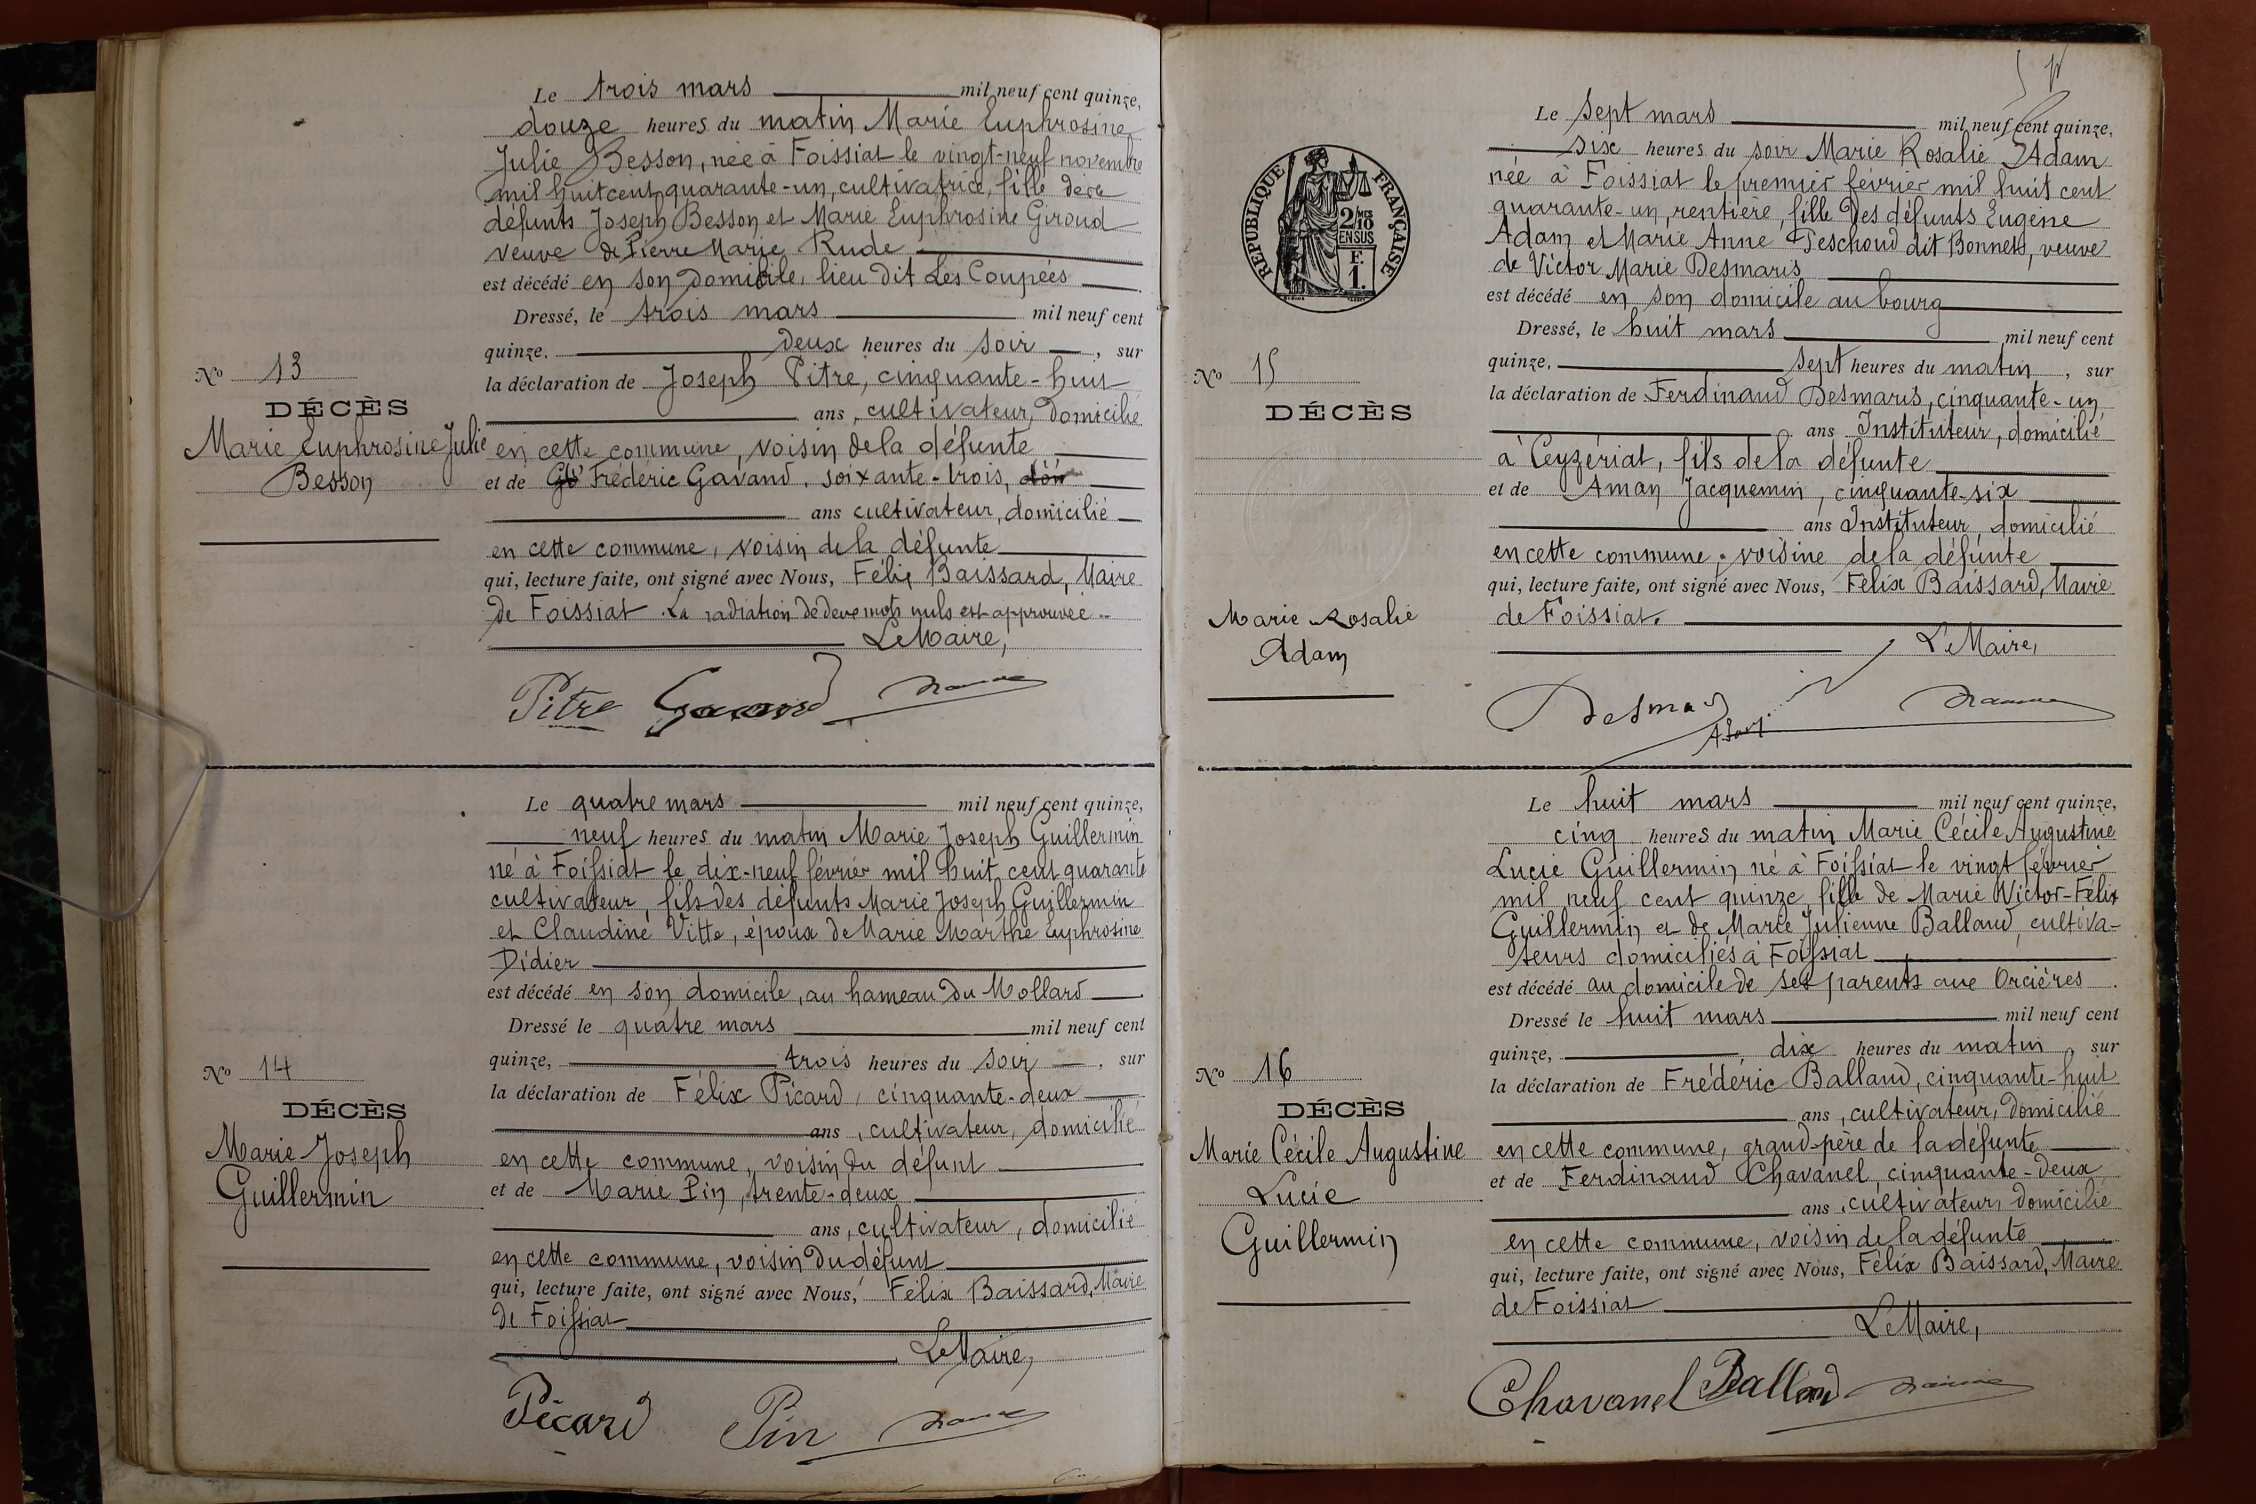 Le trois mars mil neuf cent quinze,
douze heures du matin Marie Euphrosine
Julie Besson, née à Foissiat le vingt-neuf novembre
mil huit cent quarante-un, cultivatrice, fille des
défunts Joseph Besson et Marie Euphrosine Giroud
veuve de Pierre Marie Rude
est décédé en son domicile, lieu dit Les Coupées
Dressé, le trois mars mil neuf cent
quinze, deux heures du soir, sur
la déclaration de Joseph Pitre, cinquante-huit
ans, cultivateur, domicilié
en cette commune, voisin de la défunte
et de Frédéric Gavand, soixante-trois,
ans cultivateur, domicilié
en cette commune, voisin de la défunte
qui, lecture faite, ont signé avec Nous, Félix Baissard, Maire
de Foissiat. La radiation de deux mots nuls est approuvée.
Le Maire,
Pitre Gavand
No 13
DÉCÈS
Marie Euphrosine Julie
Besson
Le quatre mars mil neuf cent quinze,
neuf heures du matin Marie Joseph Guillermin
né à Foissiat le dix-neuf février mil huit cent quarante
cultivateur, fils des défunts Marie Joseph Guillermin
et Claudine Vitte, époux de Marie Marthe Euphrosine
Didier
est décédé en son domicile, au hameau du Mollard
Dressé le quatre mars mil neuf cent
quinze, trois heures du soir, sur
la déclaration de Félix Picard, cinquante-deux
ans, cultivateur, domicilié
en cette commune, voisin du défunt
et de Marie Pin, trente-deux
ans, cultivateur, domicilié
en cette commune, voisin du défunt
qui, lecture faite, ont signé avec Nous, Félix Baissard, Maire
de Foissiat
Le Maire,
Picard Pin
No 14
DÉCÈS
Marie Joseph
Guillermin
RÉPUBLIQUE FRANÇAISE
2/10 MES
EN SUS
F.
1.
Le sept mars mil neuf cent quinze,
six heures du soir Marie Rosalie Adam
née à Foissiat le premier février mil huit cent
quarante-un, rentière, fille des défunts Eugène
Adam et Marie Anne Peschoud dit Bonnet, veuve
de Victor Marie Desmaris
est décédé en son domicile au bourg
Dressé, le huit mars mil neuf cent
quinze, sept heures du matin, sur
la déclaration de Ferdinand Desmaris, cinquante-un
ans Instituteur, domicilié
à Ceyzériat, fils de la défunte
et de Aman Jacquemin, cinquante-six
ans Instituteur, domicilié
en cette commune, voisine de la défunte
qui, lecture faite, ont signé avec Nous, Félix Baissard, Maire
de Foissiat.
Le Maire,
No 15
DÉCÈS
Marie Rosalie
Adam
Le huit mars mil neuf cent quinze,
cinq heures du matin Marie Cécile Augustine
Lucie Guillermin né à Foissiat le vingt février
mil neuf cent quinze, fille de Marie Victor-Félix
Guillermin et de Marie Julienne Balland, cultiva-
teurs domiciliés à Foissiat
est décédé au domicile de ses parents aux Orcières.
Dressé le huit mars mil neuf cent
quinze, dix heures du matin, sur
la déclaration de Frédéric Balland, cinquante-huit
ans, cultivateur, domicilié
en cette commune, grand-père de la défunte
et de Ferdinand Chavanel, cinquante-deux
ans, cultivateur, domicilié
en cette commune, voisin de la défunte
qui, lecture faite, ont signé avec Nous, Félix Baissard, Maire
de Foissiat
Le Maire,
Chavanel Balland
No 16
DÉCÈS
Marie Cécile Augustine
Lucie
Guillermin